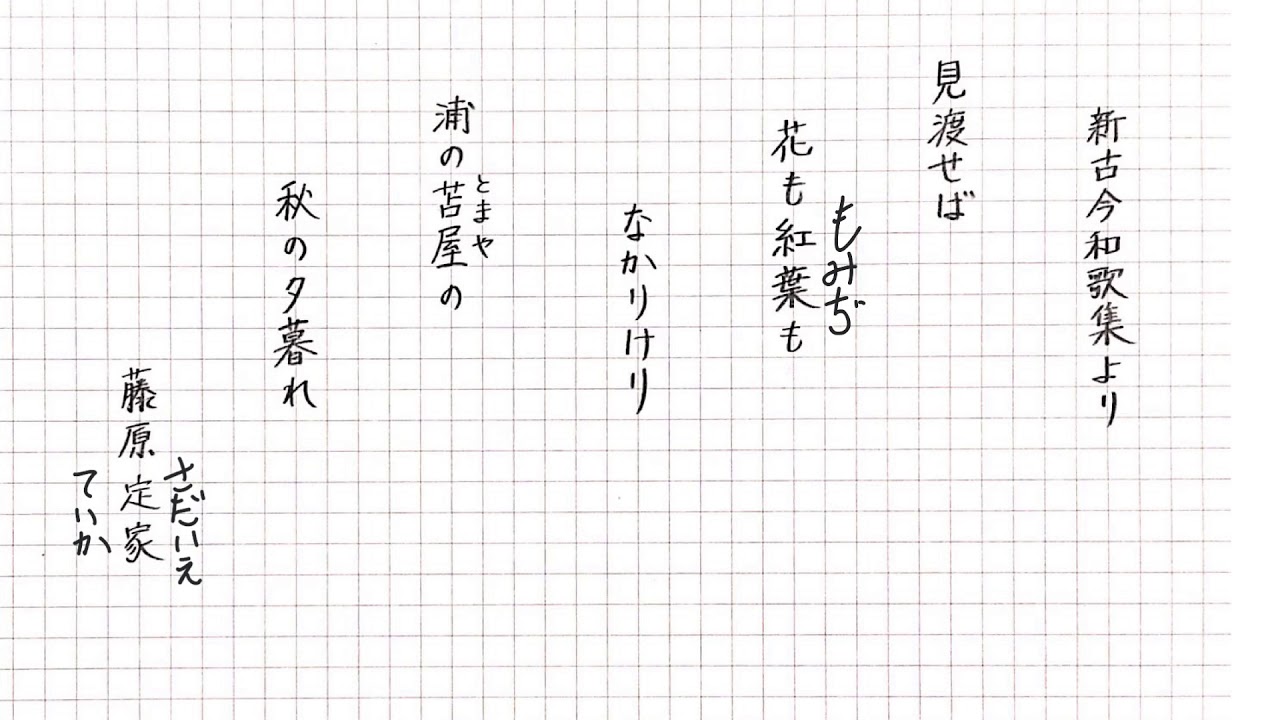 新古今和歌集より
見渡せば
もみぢ
花も紅葉も
なかりけり
とまや
浦の苫屋の
秋の夕暮れ
さだいえ
藤原定家
ていか